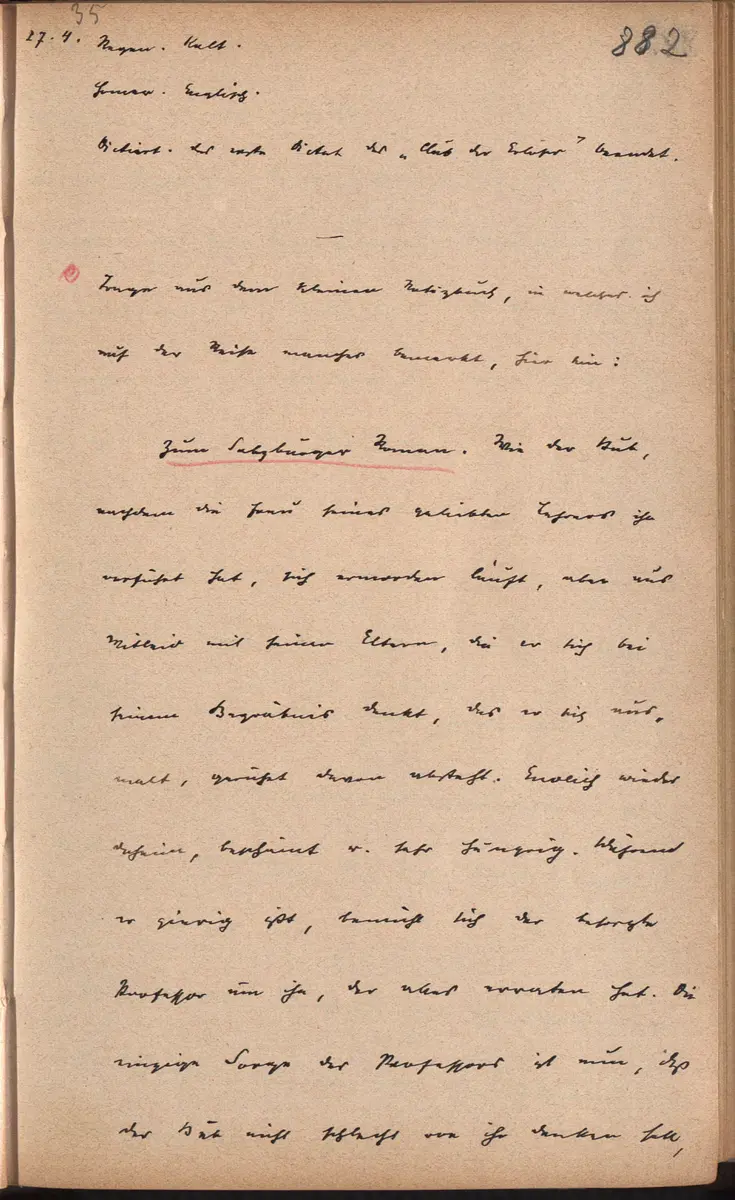 35
882
27.4. Regen. Kalt.
Homer. Englisch.
Dictiert. Das erste Dictat des „Club der Erlöser" beendet.
Trage aus dem kleinen Notizbuch, in welches ich
auf der Reise manches bemerkt, hier ein:
Zum Salzburger Roman. Wie der Bub,
nachdem die Frau seines geliebten Lehrers ihn
verführt hat, sich ermorden läuft, aber aus
Mitleid mit seinen Eltern, die er sich bei
seinem Begräbnis denkt, das er sich aus-
malt, gerührt davon absteht. Endlich wieder
daheim, beschämt u. sehr hungrig. Während
er gierig ißt, bemüht sich der besorgte
Professor um ihn, der alles erraten hat. Die
einzige Sorge des Professors ist nun, daß
der Bub nicht schlecht von ihr denken soll,